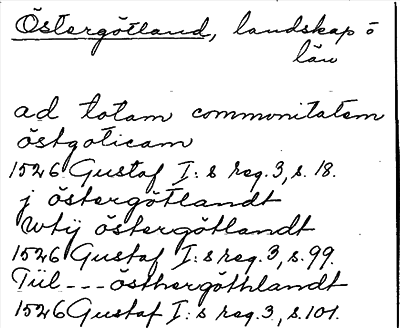 Östergötland, landskap o
län
ad totam communitatem
östgoticam
1526 Gustaf I:s reg. 3, s. 18.
j östergötlandt
wtij östergötlandt
1526 Gustaf I:s reg. 3, s. 99.
Tiil --- östhergöthlandt
1526 Gustaf I:s reg. 3, s. 101.